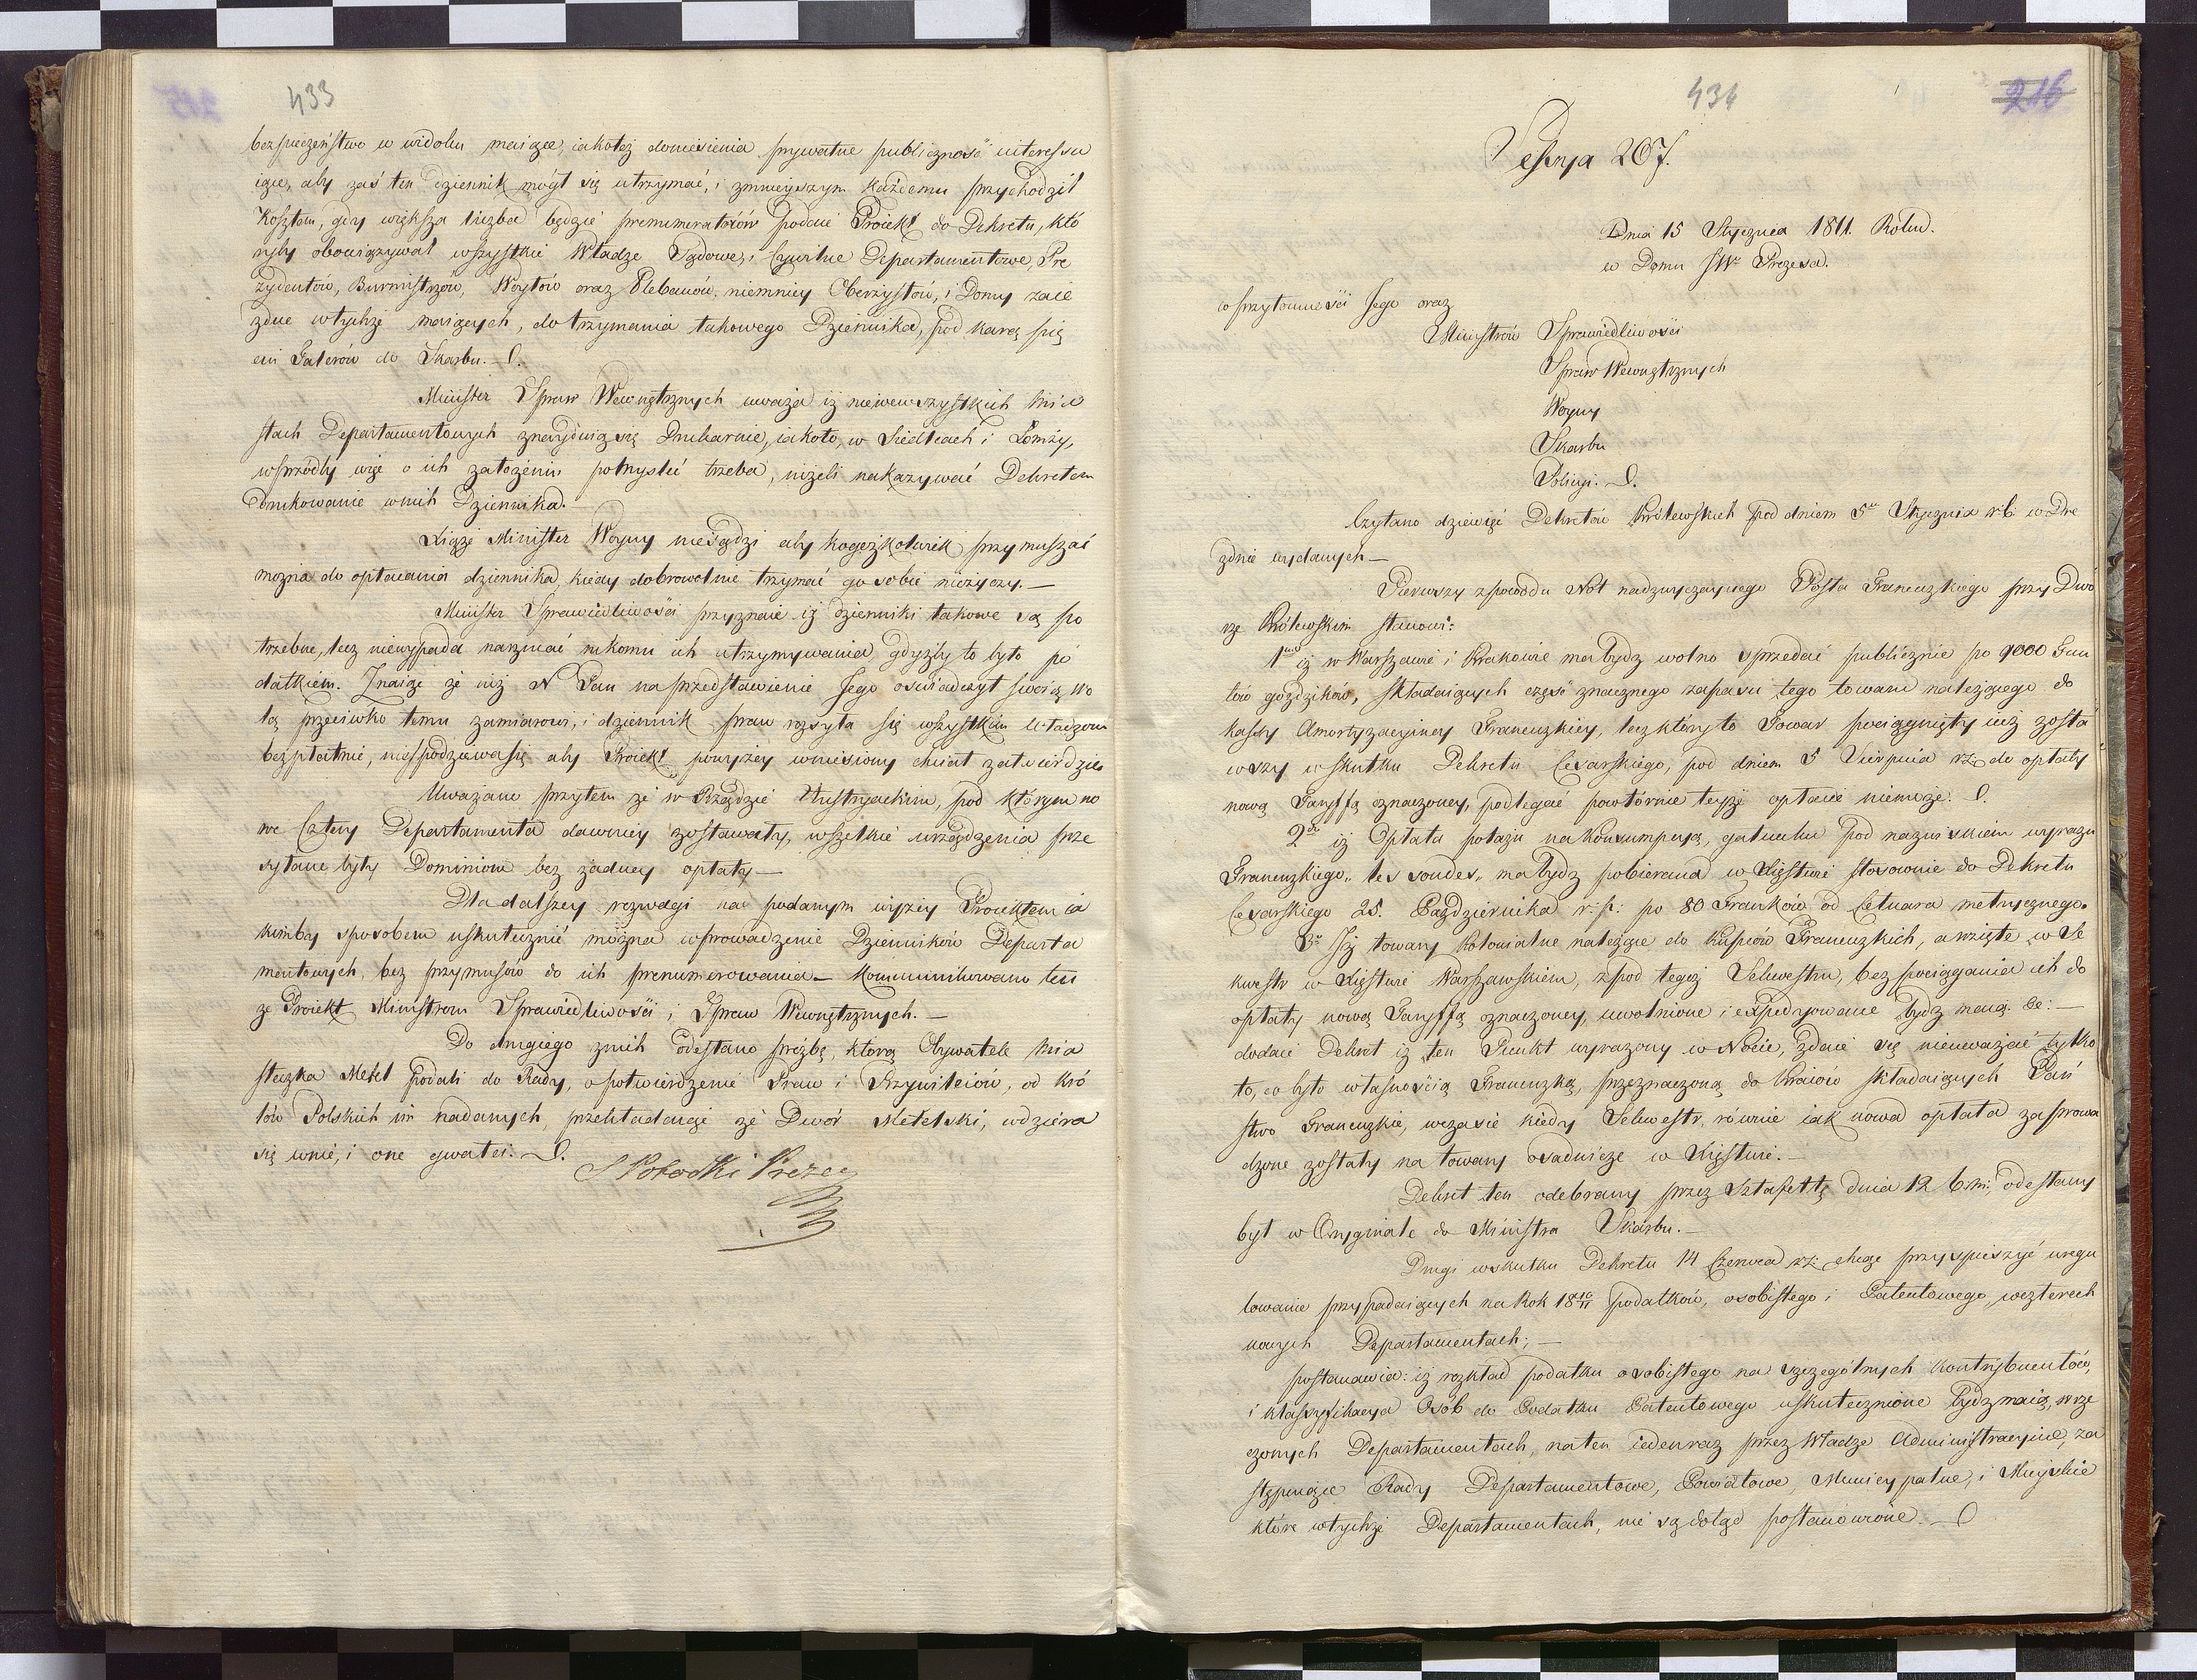 433
bezpieczeństwo w widoku maiące, iakoteż doniesienia prywatne publiczność interessu
iące, aby zaś ten dziennik mógł się utrzymać, i zmnieyszym każdemu przychodził
kosztem, gdy większa liczba będzie prenumeratorów podaie Proiekt do Dekretu, któ
ryby obowiązywał wszystkie Władze Sądowe, i Cywilne Departamentowe, Pre
zydentów, Burmistrzów, Woytów oraz Plebanów, niemniey Oberżystów, i Domy zaie
zdne wtychże maiących, do trzymania takowego Dziennika, pod karą pię
ciu Talerów do Skarbu.
Minister Spraw Wewnętrznych uważa iż niewewszystkich Mia
stach Departamentowych znayduią się Drukarnie, iakoto, w Siedlcach i Łomży,
wprzódby więc o ich założeniu pomyśleć trzeba, niżeli nakazywać Dekretem
Drukowanie wnich Dziennika.
Xiąże Minister Woyny niesądzi aby kogożkolwiek przymuszać
można do opłacania dziennika, kiedy dobrowolnie trzymać go sobie nieżyczy.—
Minister Sprawiedliwości przyznaie iż dzienniki takowe są po
trzebne, lecz niewypada narzucać nikomu ich utrzymywania, gdyżby to było po
datkiem. Znaiąc że iuż N Pan na przedstawienie Jego oświadczył swoią wo
lą przeciwko temu zamiarowi, i dziennik praw rozsyła się wszystkim Władzom
bezpłatnie, niespodziewa się aby Proiekt powyżey wniesiony chciał zatwierdzić.
Uważano przytem że w Rządzie Austryackim, pod którym no
we Cztery Departamenta dawniey zostawały, wszelkie urządzenia prze
syłane były Dominiom bez żadney opłaty—
Dla dalszey rozwagi nad podanym wyżey Proiektem ia
kimby sposobem uskutecznić można wprowadzenie Dzienników Departa
mentowych, bez przymusów do ich prenumerowania— kommunikowano ten
że Proiekt Ministrom Sprawiedliwości i Spraw Wewnętrznych.—
Do drugiego znich odesłano prośbę, którą Obywatele Mia
steczka Metel podali do Rady, o potwierdzenie Praw i Przywileiów, od Kró
lów Polskich im nadanych, przekładaiąc że Dwór Metelski, wdziera
się wnie, i one gwałci.
S Potocki Prezes
434
216
Sessya 207.
Dnia 15 Stycznia 1811. Roku.
w Domu JW Prezesa.
w przytomności Jego oraz
Ministrów Sprawiedliwości
Spraw Wewnętrznych
Woyny
Skarbu
Policyi.
Czytano dziewięć Dekretów Królewskich pod dniem 5 Stycznia r. b. w Dre
znie wydanych—
Pierwszy zpowodu Not nadzwyczaynego Posła Francuzkiego przy Dwo
rze Królewskim stanowi:
1mo iż w Warszawie i Krakowie ma bydz wolno sprzedać publicznie po 9000 Fun
tów goździków, składaiących część znacznego zapasu tego towaru należącego do
kassy Amortyzacyiney Francuzkiey, lecz któryto Towar pociągnięty iuż zosta
wszy w skutku Dekretu Cesarskiego, pod dniem 5 Sierpnia rz: do opłaty
nową Taryffą oznaczoney, podlegać powtórnie teyże opłacie niemoże.
2do iż Opłata potażu na Konsumpcyą, gatunku pod nazwiskiem wyrazu
Francuzkiego „les soudes„ ma bydz pobierana w Xięstwie stosownie do Dekretu
Cesarskiego 25. Października r: p: po 80 Franków od Cetnara metrycznego.
3o Iż towary kolonialne należące do Kupców Francuzkich, a wzięte w Se
kwestr w Xięstwie Warszawskiem, zpod tegoż Sekwestru, bez pociągania ich do
opłaty nową Taryffą oznaczoney, uwolnione i expedyowane bydz maią. —
dodaie Dekret iż ten Punkt wyrażony w Nocie, zdaie się nieuważać tylko
to, co było własnością Francuzką, przeznaczoną do Kraiów składaiących Pań
stwo Francuzkie, wczasie kiedy Sekwestr, równie iak nowa opłata zaprowa
dzone zostały na towary osadnicze w Xięstwie.—
Dekret ten odebrany przez Sztafettę dnia 12 b. m: odesłany
był w Oryginale do Ministra Skarbu.—
Drugi wskutku Dekretu 14 Czerwca rz: chcąc przyspieszyć uregu
lowanie przypadaiących na Rok 1810/11 podatków, osobistego i Patentowego, wczterech
nowych Departamentach;—
postanawia: iż rozkład podatku osobistego na szczególnych kontrybuentów,
i klassyfikacya Osób do Podatku Patentowego uskutecznione bydz maią, wrze
czonych Departamentach, na ten iedenraz przez Władze Administracyine, za
stępuiące Rady Departamentowe, Powiatowe, Municypalne, i Mieyskie
które wtychże Departamentach, nie są dotąd postanowione.—